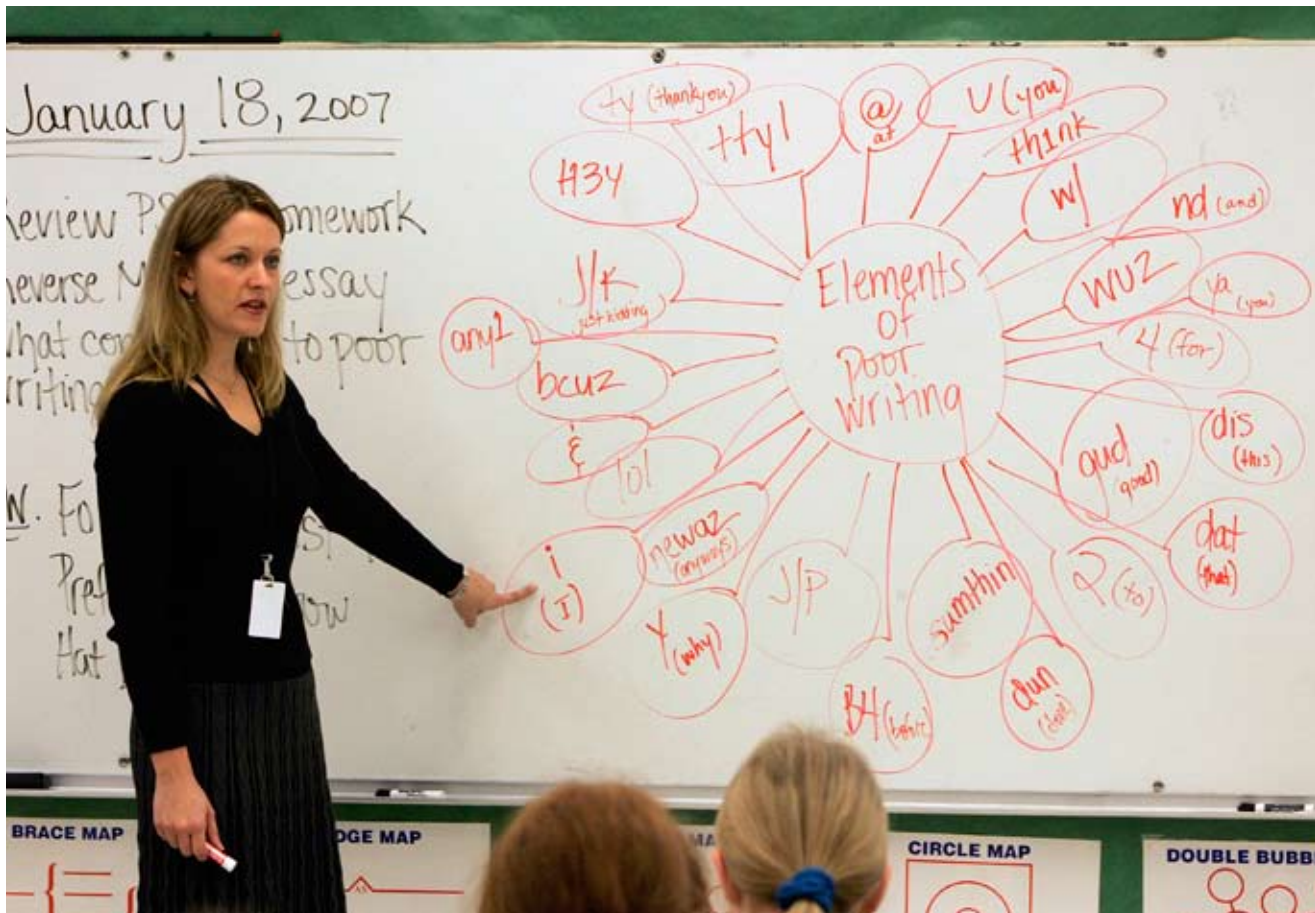 January 18, 2007
Review omework
everse M essay
what con to poor
writing
Fo
Pref ow
Hat
Elements
of
Poor
Writing
ty (thankyou)
ttyl
@
at
U (you
th1nk
w/
nd (and)
wuz
ya
(you)
4 (for)
dis
(this)
gud
(good)
dat
(that)
2 (to)
sumthin
dun
B4 (before)
J/P
Y
(why)
newaz
(anyways)
i
(I)
lol
&
bcuz
any1
J/K
just kidding
H3Y
BRACE MAP
DGE MAP
MA
CIRCLE MAP
DOUBLE BUBB